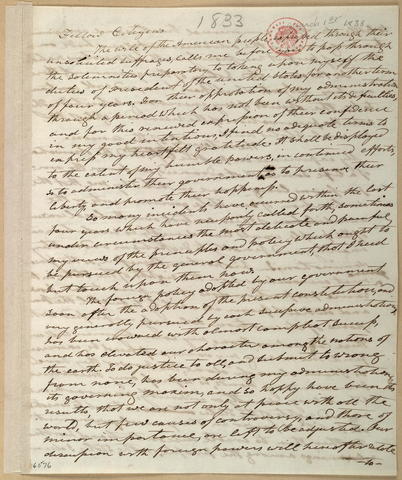 1833
March 1st 1833
Fellow Citizens
The will of the American people expressed through their
unsolicited suffrages calls me before you to pass through
the solemnities preparatory to taking upon myself the
duties of President of the United States for another term
of four years. For their approbation of my administration
through a period which has not been without its difficulties,
and for this renewed expression of their confidence
in my good intentions, I find no adequate terms to
express my heartfelt gratitude. It shall be displayed
to the extent of my humble powers, in continued efforts,
so to administer their government, as to preserve their
liberty and promote their happiness.
So many incidents have occurred within the last
four years which have necessarily called forth, sometimes
under circumstances the most delicate and painful,
my views of the principles and policy which ought to
be pursued by the general government, that I need
but touch upon them now.
The foreign policy adopted by our government
soon after the adoption of the present constitution, and
very generally pursued by each successive administration,
has been crowned with almost compleat success,
and has elevated our character among the nations of
the earth. To do justice to all, and submit to wrong
from none, has been during my administration,
its governing maxim, and so happy have been its
results, that we are not only at peace with all the
world, but few causes of controversy, and those of
minor importance, are left to be adjusted.
with foreign powers will
to